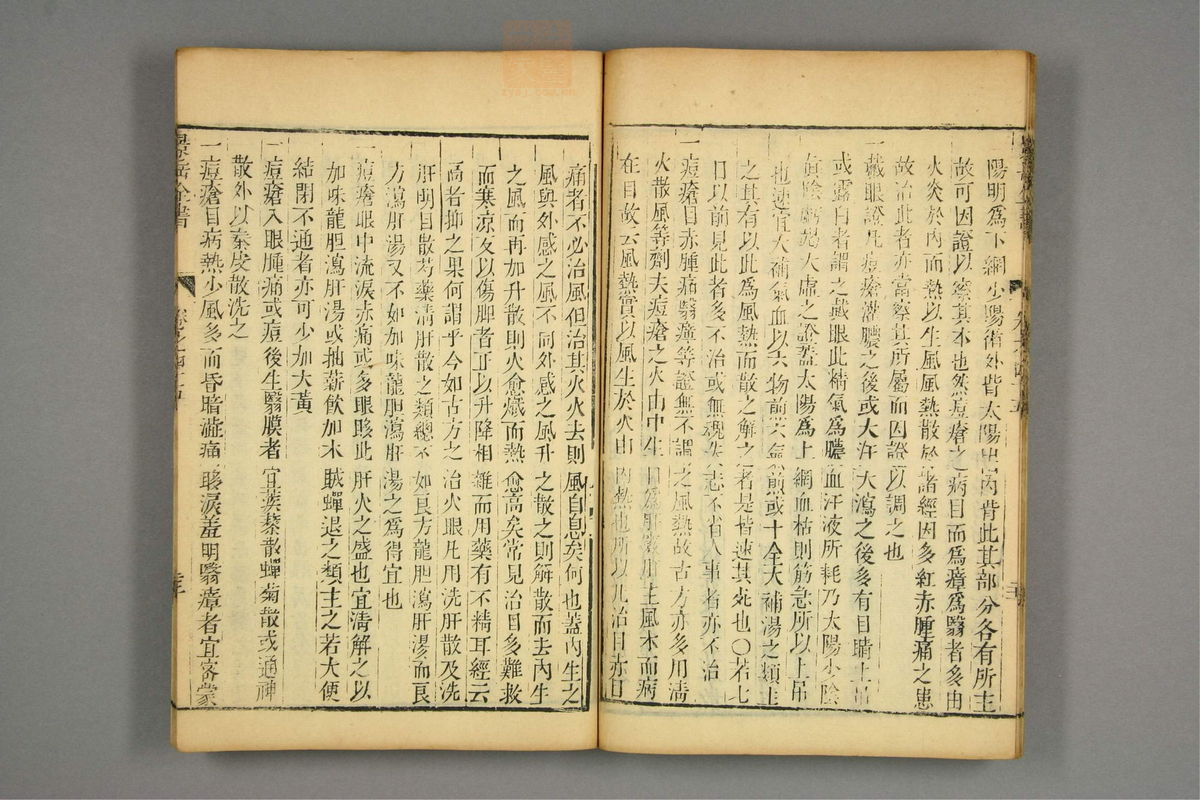 陽明爲下綱少陽衛外眥太陽出內眥此其部分各有所主
故可因證以察其本也然痘瘡之病目而爲瘴爲翳者多由
火炎於內而熱以生風風熱散於諸經因多紅赤腫痛之患
故治此者亦當察其所屬而因證以調之也
一戴眼證凡痘瘡灌膿之後或大汗大瀉之後多有目睛上吊
或露白者謂之戴眼此精氣爲膿血汗液所耗乃太陽少陰
眞陰虧竭大虛之證蓋太陽爲上綱血枯則筋急所以上吊
也速宜大補氣血以六物煎六氣煎或十全大補湯之類主
之其有以此爲風熱而散之解之者是皆速其死也〇若七
日以前見此者多不治或無魂失志不省人事者亦不治
一痘瘡目赤腫痛翳瘴等證無不謂之風熱故古方亦多用淸
火散風等劑夫痘瘡之火由中生目爲肝竅肝主風木而病
在目故云風熱實以風生於火由內熱也所以凡治目赤目
痛者不必治風但治其火火去則風自息矣何也蓋內生之
風與外感之風不同外感之風升之散之則解散而去內生
之風而再加升散則火愈熾而熱愈高矣常見治目多難救
而寒涼反以傷脾者正以升降相雜而用藥有不精耳經云
高者抑之果何謂乎今如古方之治火眼凡用洗肝散及洗
肝明目散芍藥淸肝散之類總不如良方龍胆瀉肝湯而良
方瀉肝湯又不如加味龍胆瀉肝湯之爲得宜也
一痘瘡眼中流淚赤痛或多眼眵此肝火之盛也宜淸解之以
加味龍胆瀉肝湯或抽薪飲加木賊蟬退之類主之若大便
結閉不通者亦可少加大黃
一痘瘡入眼腫痛或痘後生翳膜者宜蒺藜散蟬菊散或通神
散外以秦皮散洗之
一痘瘡目病熱少風多而昏暗澁痛眵淚羞明翳瘴者宜密蒙
景岳全書